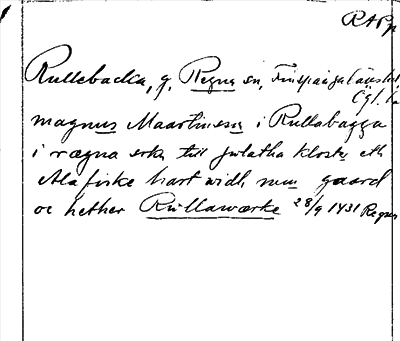 RAPp
Rullebacka, g, Regna sn, Finspånga länshd,
Ögl. la
magnus Maartinsson i Rullabagga
i rægna sokn till Jwlatha kloster eth
Ala fiske hart widh, min gaard
oc hether Rullawærke 28/9 1431 Regna